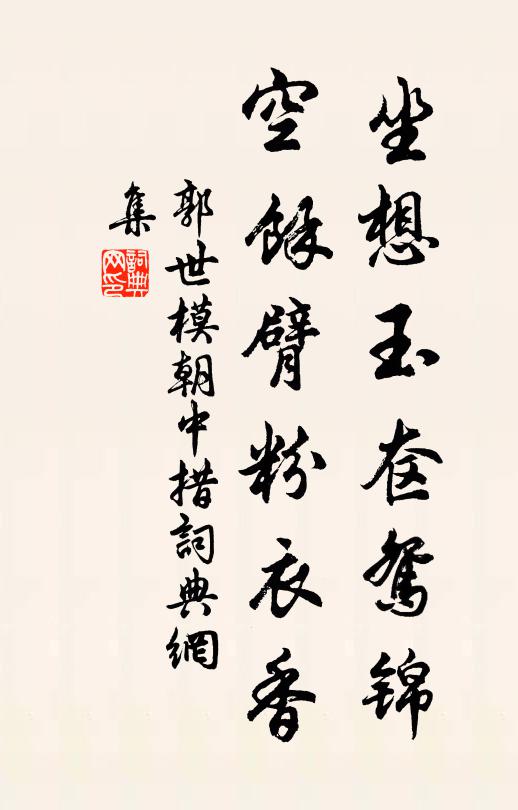 坐想玉奁鸳锦
空餘臂粉衣香
郭世模朝中措詞典網
集
詞典网印